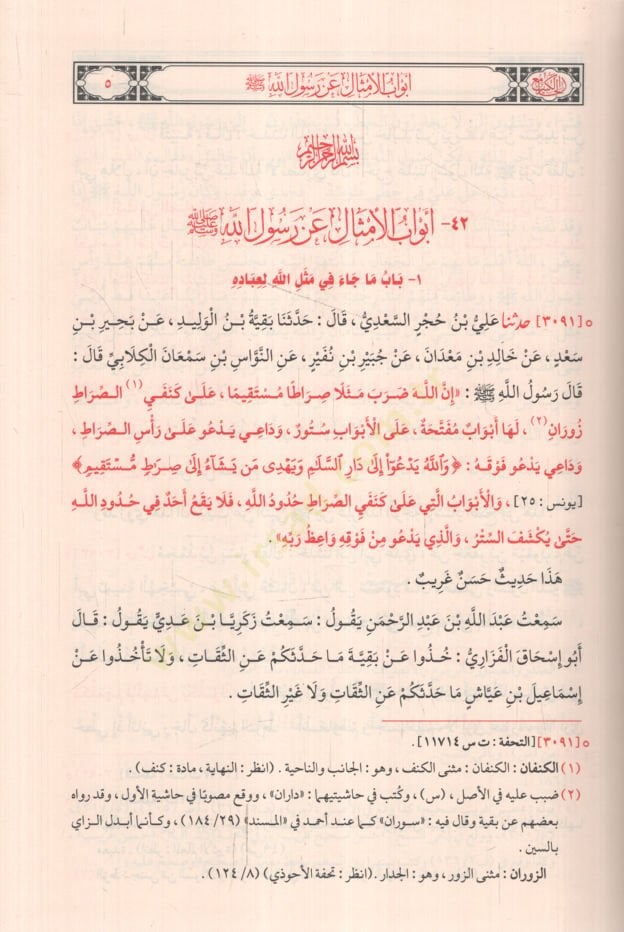 أبواب الأمثال عن رسول الله ﷺ
٥
بسم الله الرحمن الرحيم
٤٢- أَبْوَابُ الأَمْثَالِ عَنْ رَسُولِ اللَّهِ ﷺ
١- بَابُ مَا جَاءَ فِي مَثَلِ اللَّهِ لِعِبَادِهِ
° [٣٠٩١] حدثنا عَلِيُّ بْنُ حُجْرٍ السَّعْدِيُّ، قَالَ: حَدَّثَنَا بَقِيَّةُ بْنُ الْوَلِيدِ، عَنْ بَحِيرِ بْنِ
سَعْدٍ، عَنْ خَالِدِ بْنِ مَعْدَانَ، عَنْ جُبَيْرِ بْنِ نُفَيْرٍ، عَنِ النَّوَّاسِ بْنِ سَمْعَانَ الْكِلَابِيِّ قَالَ:
قَالَ رَسُولُ اللَّهِ ﷺ: «إِنَّ اللَّهَ ضَرَبَ مَثَلًا صِرَاطًا مُسْتَقِيمًا، عَلَى كَنَفَيِ (١) الصِّرَاطِ
زُورَانِ (٢)، لَهَا أَبْوَابٌ مُفَتَّحَةٌ، عَلَى الْأَبْوَابِ سُتُورٌ، وَدَاعِي يَدْعُو عَلَى رَأْسِ الصِّرَاطِ،
وَدَاعِي يَدْعُو فَوْقَهُ: ﴿وَاللَّهُ يَدْعُوا إِلَى دَارِ السَّلَامِ وَيَهْدِي مَن يَشَاءُ إِلَى صِرَاطٍ مُّسْتَقِيمٍ﴾
[يونس: ٢٥]، وَالْأَبْوَابُ الَّتِي عَلَى كَنَفَيِ الصِّرَاطِ حُدُودُ اللَّهِ، فَلَا يَقَعُ أَحَدٌ فِي حُدُودِ اللَّهِ
حَتَّى يُكْشَفَ السِّتْرُ، وَالَّذِي يَدْعُو مِنْ فَوْقِهِ وَاعِظُ رَبِّهِ».
هَذَا حَدِيثٌ حَسَنٌ غَرِيبٌ.
سَمِعْتُ عَبْدَ اللَّهِ بْنَ عَبْدِ الرَّحْمَنِ يَقُولُ: سَمِعْتُ زَكَرِيَّا بْنَ عَدِيٍّ يَقُولُ: قَالَ
أَبُو إِسْحَاقَ الْفَزَارِيُّ: خُذُوا عَنْ بَقِيَّةَ مَا حَدَّثَكُمْ عَنِ الثِّقَاتِ، وَلَا تَأْخُذُوا عَنْ
إِسْمَاعِيلَ بْنِ عَيَّاشٍ مَا حَدَّثَكُمْ عَنِ الثِّقَاتِ وَلَا غَيْرِ الثِّقَاتِ.
° [٣٠٩١] [التحفة: ت س ١١٧١٤].
(١) الكنفان: الكنفان: مثنى الكنف، وهو: الجانب والناحية. (انظر: النهاية، مادة: كنف).
(٢) ضبب عليه في الأصل، (س)، وكُتب في حاشيتيهما: «داران»، ووقع مصوبًا في حاشية الأول، وقد رواه
بعضهم عن بقية وقال فيه: «سوران» كما عند أحمد في «المسند» (٢٩/ ١٨٤)، وكأنما أبدل الزاي
بالسين.
الزوران: مثنى الزور، وهو: الجدار. (انظر: تحفة الأحوذي) (٨/ ١٢٤).